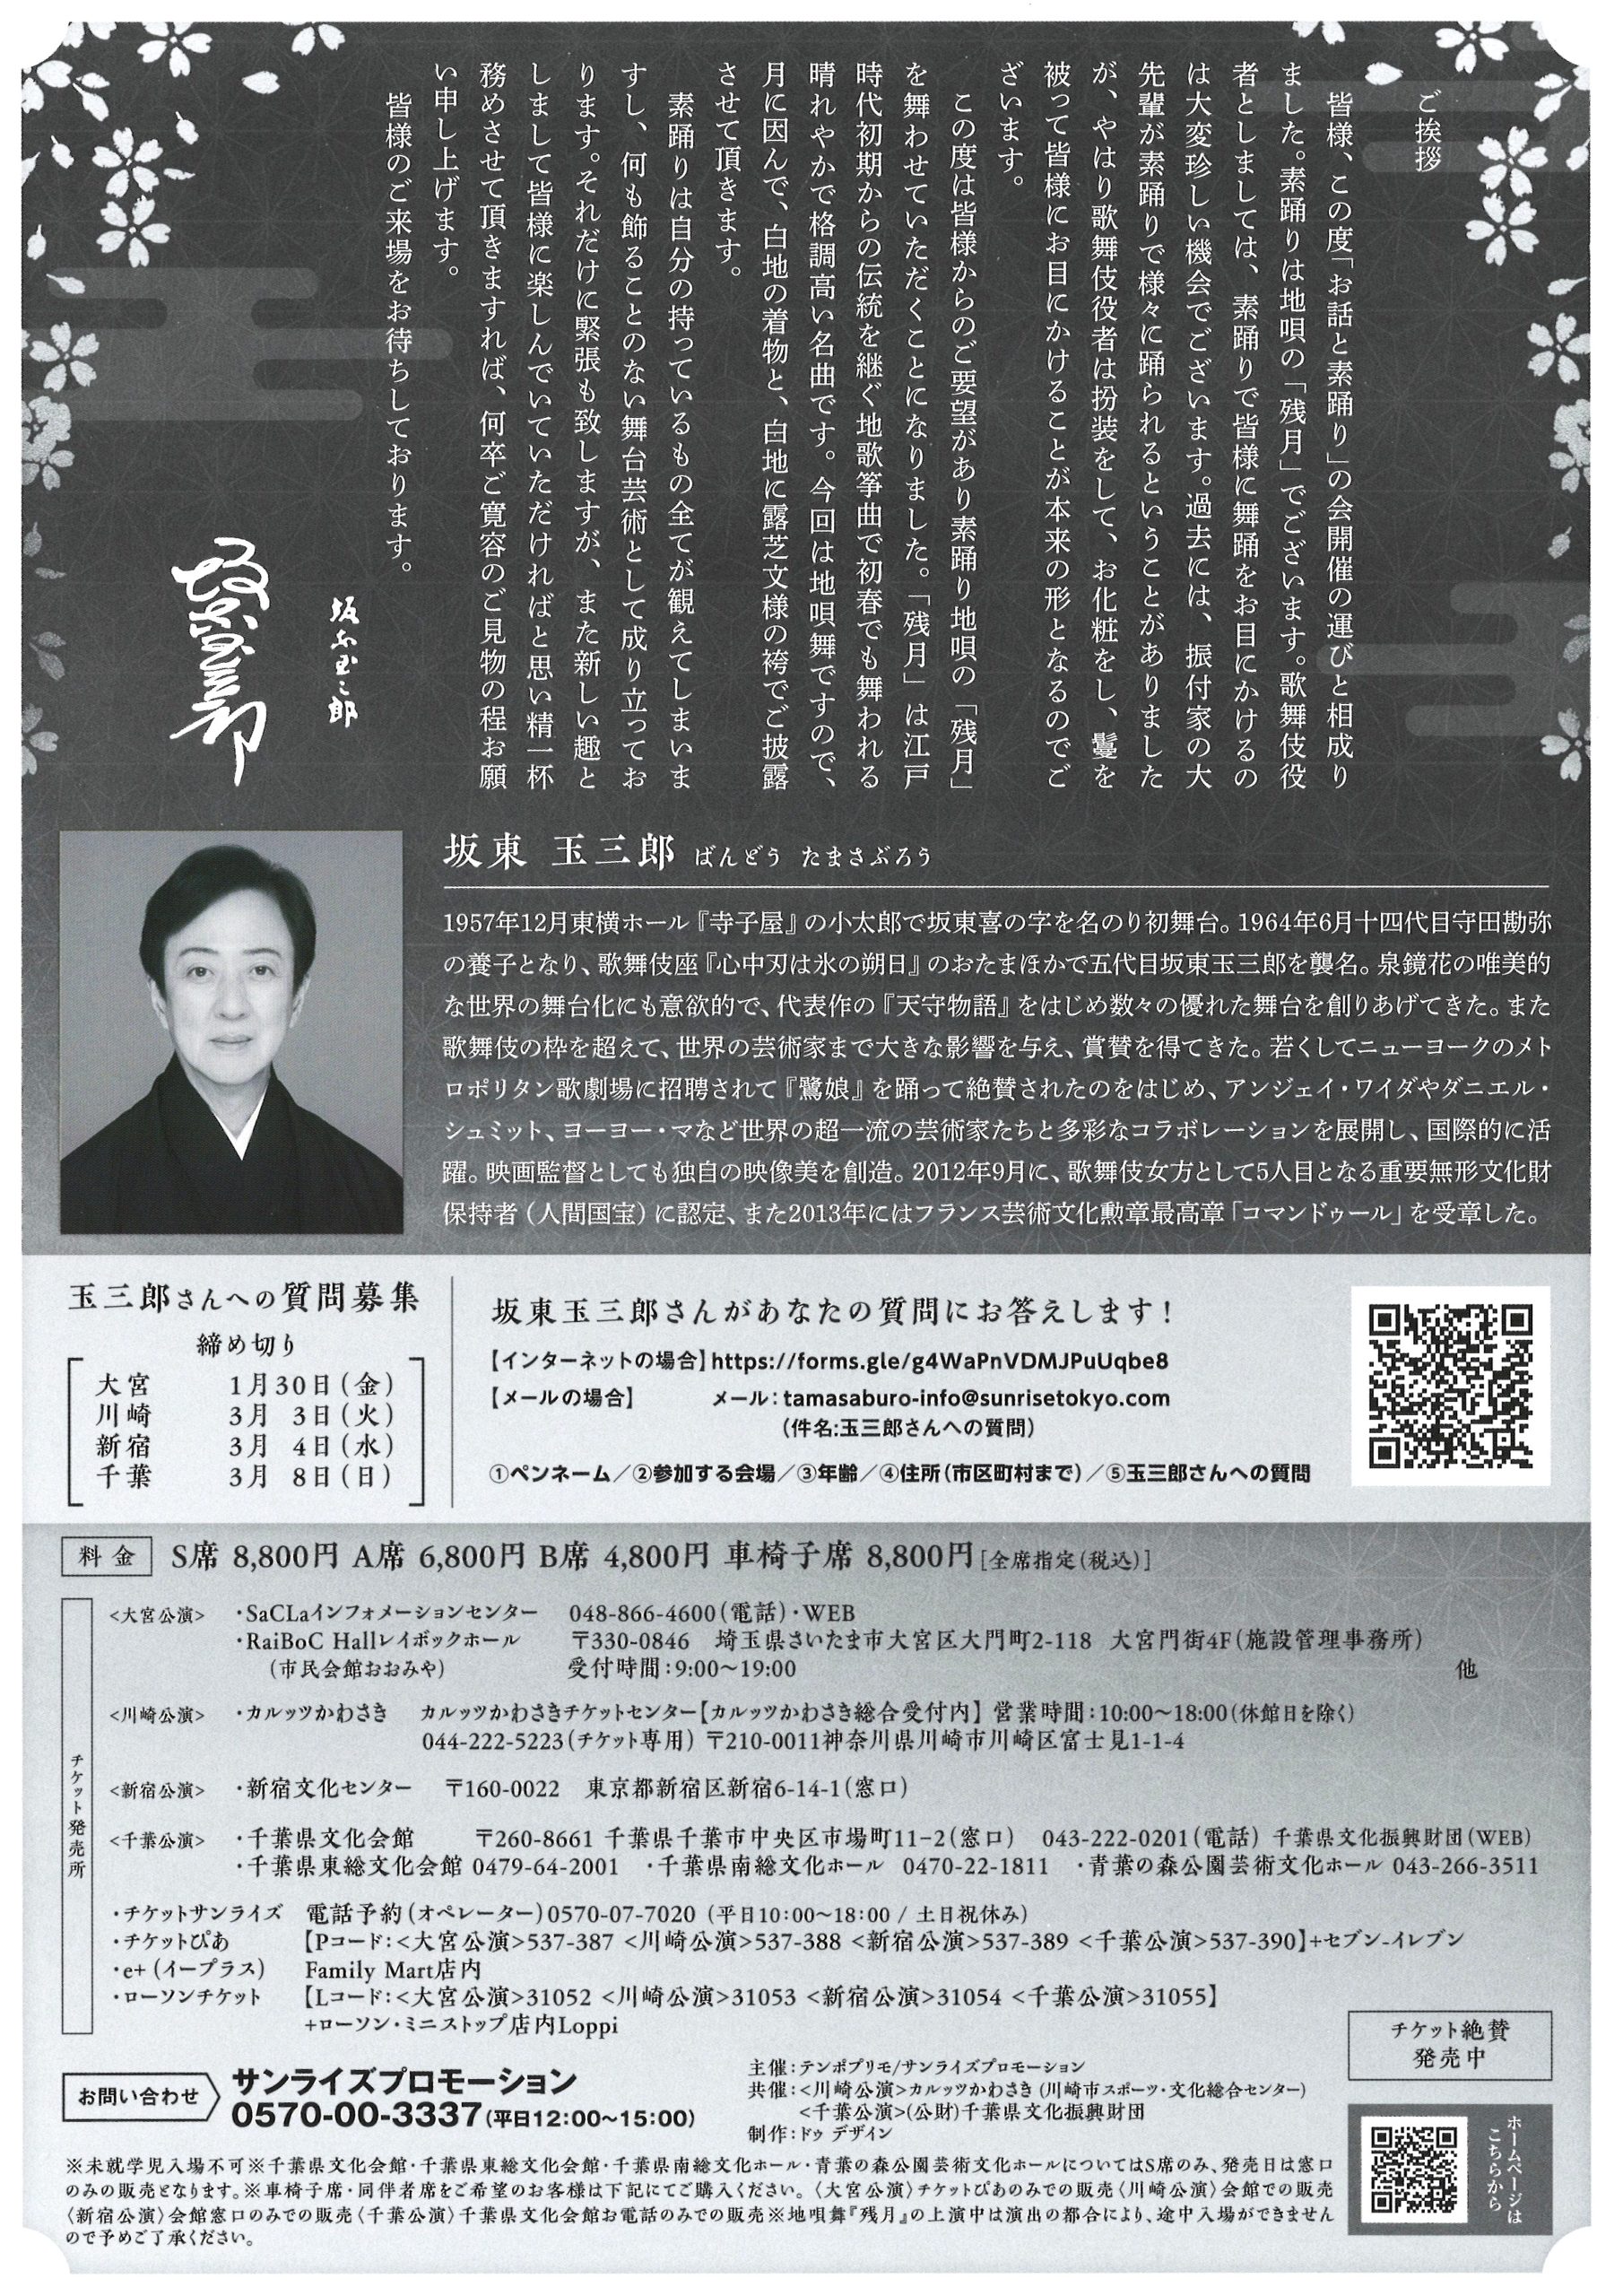 ご挨拶
皆様、この度「お話と素踊り」の会開催の運びと相成り
ました。素踊りは地唄の「残月」でございます。歌舞伎役
者としましては、素踊りで皆様に舞踊をお目にかけるの
は大変珍しい機会でございます。過去には、振付家の大
先輩が素踊りで様々に踊られるということがありました
が、やはり歌舞伎役者は扮装をして、お化粧をし、鬘を
被って皆様にお目にかけることが本来の形となるのでご
ざいます。
この度は皆様からのご要望があり素踊り地唄の「残月」
を舞わせていただくことになりました。「残月」は江戸
時代初期からの伝統を継ぐ地歌筝曲で初春でも舞われる
晴れやかで格調高い名曲です。今回は地唄舞ですので、
月に因んで、白地の着物と、白地に露芝文様の袴でご披露
させて頂きます。
素踊りは自分の持っているもの全てが観えてしまいま
すし、何も飾ることのない舞台芸術として成り立ってお
ります。それだけに緊張も致しますが、また新しい趣と
しまして皆様に楽しんでいていただければと思い精一杯
務めさせて頂きますれば、何卒ご寛容のご見物の程お願
い申し上げます。
皆様のご来場をお待ちしております。
坂東玉三郎
坂東玉三郎
坂東 玉三郎 ばんどう たまさぶろう
1957年12月東横ホール『寺子屋』の小太郎で坂東喜の字を名のり初舞台。1964年6月十四代目守田勘弥
の養子となり、歌舞伎座『心中刃は氷の朔日』のおたまほかで五代目坂東玉三郎を襲名。泉鏡花の唯美的
な世界の舞台化にも意欲的で、代表作の『天守物語』をはじめ数々の優れた舞台を創りあげてきた。また
歌舞伎の枠を超えて、世界の芸術家まで大きな影響を与え、賞賛を得てきた。若くしてニューヨークのメト
ロポリタン歌劇場に招聘されて『鷺娘』を踊って絶賛されたのをはじめ、アンジェイ・ワイダやダニエル・
シュミット、ヨーヨー・マなど世界の超一流の芸術家たちと多彩なコラボレーションを展開し、国際的に活
躍。映画監督としても独自の映像美を創造。2012年9月に、歌舞伎女方として5人目となる重要無形文化財
保持者（人間国宝）に認定、また2013年にはフランス芸術文化勲章最高章「コマンドゥール」を受章した。
玉三郎さんへの質問募集
締め切り
大宮 1月30日(金)
川崎 3月 3日(火)
新宿 3月 4日(水)
千葉 3月 8日(日)
坂東玉三郎さんがあなたの質問にお答えします！
【インターネットの場合】https://forms.gle/g4WaPnVDMJPuUqbe8
【メールの場合】 メール：tamasaburo-info@sunrisetokyo.com
(件名:玉三郎さんへの質問)
①ペンネーム／②参加する会場／③年齢／④住所(市区町村まで)／⑤玉三郎さんへの質問
料金 S席 8,800円 A席 6,800円 B席 4,800円 車椅子席 8,800円[全席指定(税込)]
チケット発売所
<大宮公演> ・SaCLaインフォメーションセンター 048-866-4600(電話)・WEB
・RaiBoC Hallレイボックホール 〒330-0846 埼玉県さいたま市大宮区大門町2-118 大宮門街4F(施設管理事務所)
(市民会館おおみや) 受付時間：9:00～19:00 他
<川崎公演> ・カルッツかわさき カルッツかわさきチケットセンター【カルッツかわさき総合受付内】 営業時間：10:00～18:00(休館日を除く)
044-222-5223(チケット専用) 〒210-0011神奈川県川崎市川崎区富士見1-1-4
<新宿公演> ・新宿文化センター 〒160-0022 東京都新宿区新宿6-14-1(窓口)
<千葉公演> ・千葉県文化会館 〒260-8661 千葉県千葉市中央区市場町11-2(窓口) 043-222-0201(電話) 千葉県文化振興財団(WEB)
・千葉県東総文化会館 0479-64-2001 ・千葉県南総文化ホール 0470-22-1811 ・青葉の森公園芸術文化ホール 043-266-3511
・チケットサンライズ 電話予約(オペレーター)0570-07-7020 (平日10:00～18:00 / 土日祝休み)
・チケットぴあ 【Pコード:<大宮公演>537-387 <川崎公演>537-388 <新宿公演>537-389 <千葉公演>537-390】+セブン-イレブン
・e+(イープラス) Family Mart店内
・ローソンチケット 【Lコード:<大宮公演>31052 <川崎公演>31053 <新宿公演>31054 <千葉公演>31055】
+ローソン・ミニストップ店内Loppi
チケット絶賛
発売中
お問い合わせ サンライズプロモーション
0570-00-3337(平日12：00～15：00)
主催：テンポプリモ/サンライズプロモーション
共催：<川崎公演>カルッツかわさき (川崎市スポーツ・文化総合センター)
<千葉公演>(公財)千葉県文化振興財団
制作：ドゥ デザイン
ホームページは
こちらから
※未就学児入場不可※千葉県文化会館・千葉県東総文化会館・千葉県南総文化ホール・青葉の森公園芸術文化ホールについてはS席のみ、発売日は窓口
のみの販売となります。※車椅子席・同伴者席をご希望のお客様は下記にてご購入ください。〈大宮公演〉チケットぴあのみでの販売〈川崎公演〉会館での販売
〈新宿公演〉会館窓口のみでの販売〈千葉公演〉千葉県文化会館お電話のみでの販売※地唄舞『残月』の上演中は演出の都合により、途中入場ができません
ので予めご了承ください。